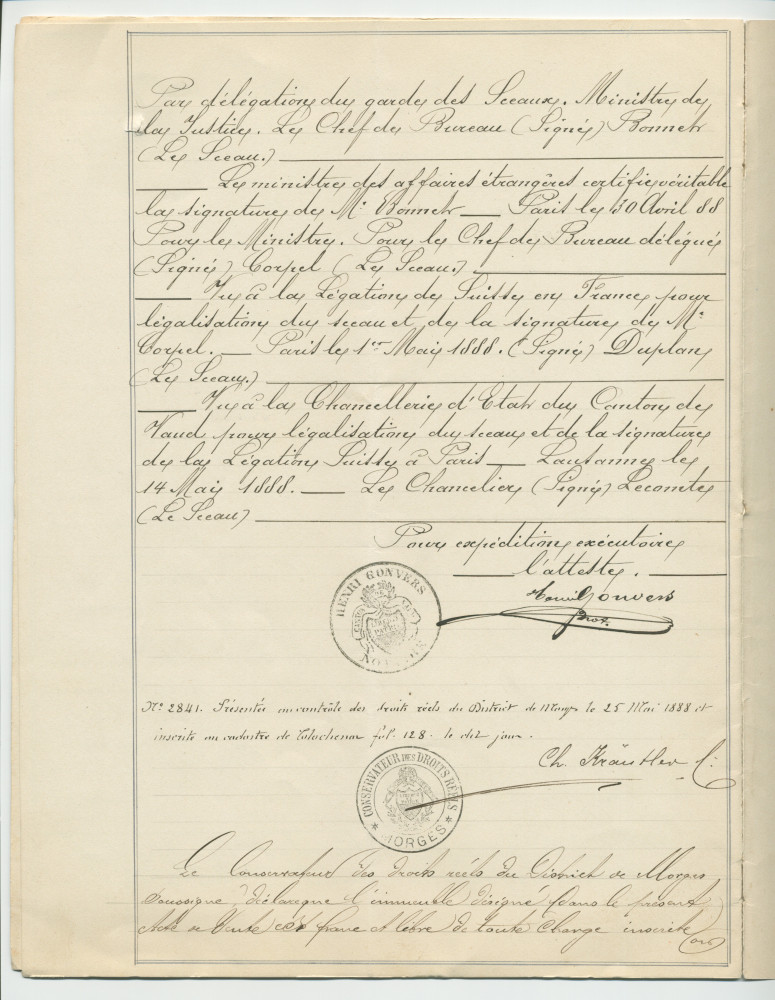 Par délégation du garde des Sceaux. Ministre de
la Justice. Le Chef de Bureau (Signé) Bonnet
(Le Sceau.)
Le ministre des affaires étrangères certifie véritable
la signature de Mr. Bonnet — Paris le 30 Avril 88
Pour le Ministre. Pour le Chef de Bureau délégué
(Signé) Corpel (Le Sceau.)
Vu à la Légation de Suisse en France pour
légalisation du sceau et de la signature de Mr.
Corpel. — Paris le 1er Mai 1888. (Signé) Duplan
(Le Sceau.)
Vu à la Chancellerie d'Etat du Canton de
Vaud pour légalisation du sceau et de la signature
de la Légation Suisse à Paris — Lausanne le
14 Mai 1888. — Le Chancelier (Signé) Lecomte
(Le Sceau)
Pour expédition exécutoire
l'atteste.
Henri Gonvers
Not.
HENRI GONVERS
NOTAIRE
No. 2841. Présentée au contrôle des droits réels du District de Morges le 25 Mai 1888 et
inscrite au cadastre de Tolochenaz fol. 128. le dit jour.
Ch. Kräutler C.
CONSERVATEUR DES DROITS RÉELS
* MORGES *
Le Conservateur des droits réels du District de Morges
soussigné, déclare que l'immeuble désigné dans le présent
Acte de Vente est franc et libre de toute charge inscrite